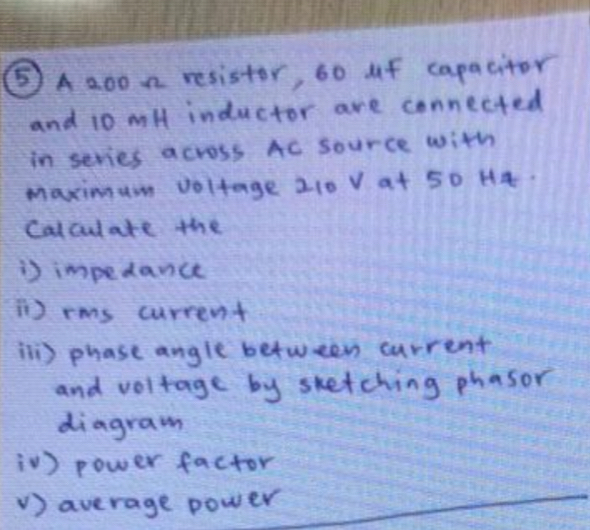 ⑤ A 200 Ω resistor, 60 μf capacitor
and 10 mH inductor are connected
in series across AC source with
maximum voltage 210 V at 50 Hz.
Calculate the
i) impedance
ii) rms current
iii) phase angle between current
and voltage by sketching phasor
diagram
iv) power factor
v) average power